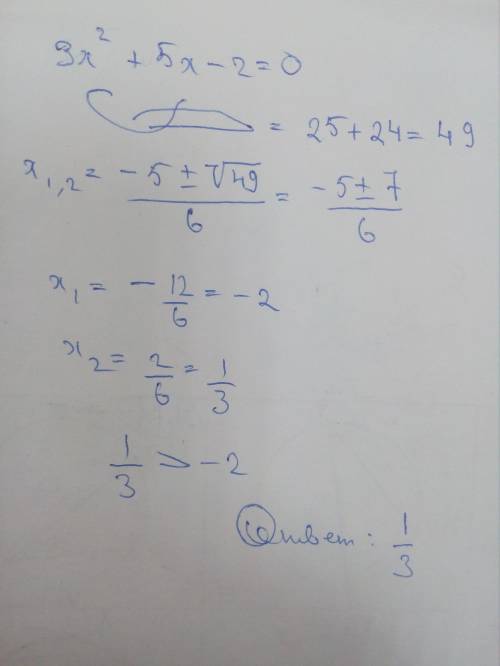 3x² + 5x - 2 = 0
= 25 + 24 = 49
x₁,₂ = (-5 ± √49)/6 = (-5 ± 7)/6
x₁ = - 12/6 = -2
x₂ = 2/6 = 1/3
1/3 > -2
Ответ: 1/3